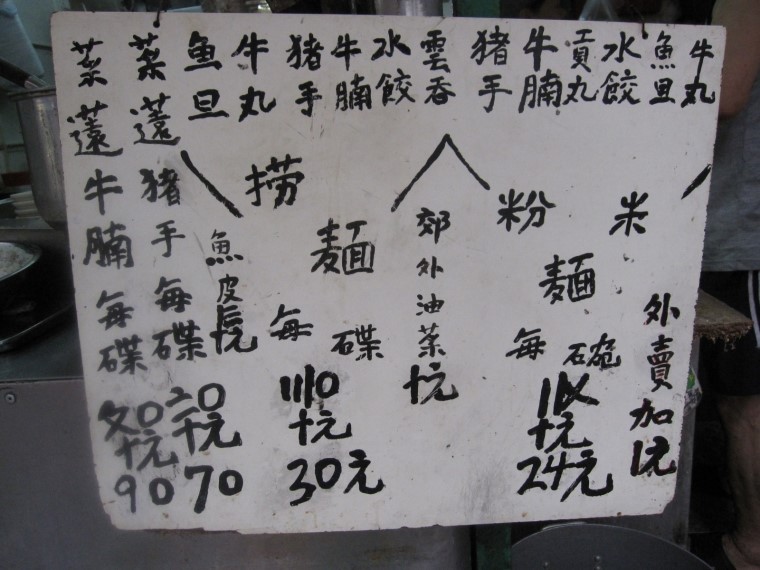 牛丸
魚旦
水餃
貢丸
牛腩
猪手
雲吞
水餃
牛腩
猪手
牛丸
魚旦
菜薳猪手每碟
菜薳牛腩每碟
外賣加1元
米粉麵每碗
〢〤
十元
24元
郊外油菜
捞麵每碟
〣0
十元
30元
魚皮
〧0
十元
70
〩0
十元
90